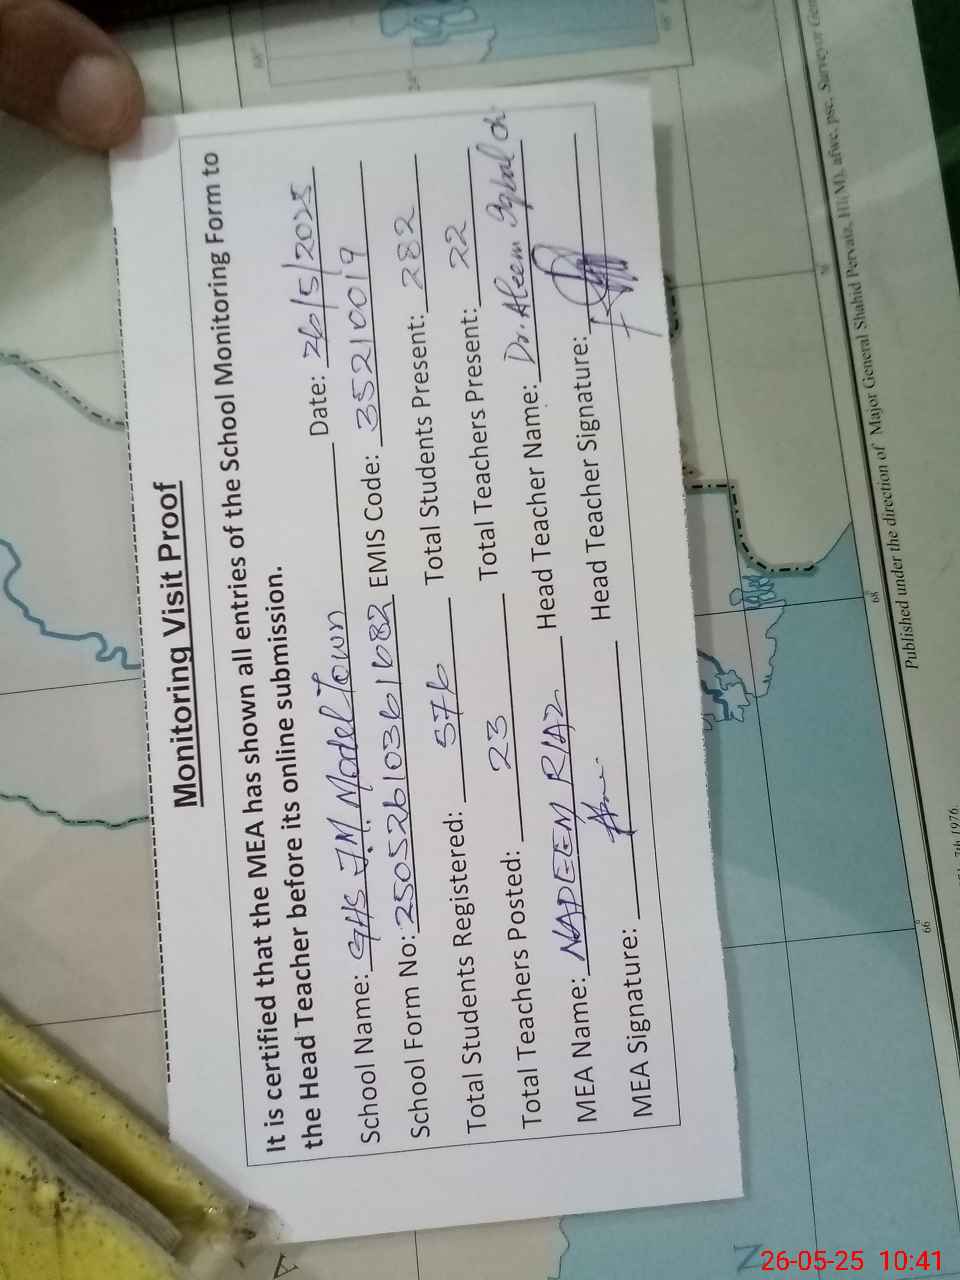 Monitoring Visit Proof
It is certified that the MEA has shown all entries of the School Monitoring Form to
the Head Teacher before its online submission.
School Name: GHS J.M. Model Town Date: 26/5/2025
School Form No: 25052610361682 EMIS Code: 35210019
Total Students Registered: 576 Total Students Present: 282
Total Teachers Posted: 23 Total Teachers Present: 22
MEA Name: NADEEM RIAZ Head Teacher Name: Dr. Aleem Iqbal Ch.
MEA Signature: Head Teacher Signature:
Published under the direction of Major General Shahid Pervaiz, HI(M), afwc, psc, Surveyor
66
68
7th 1976.
26-05-25 10:41